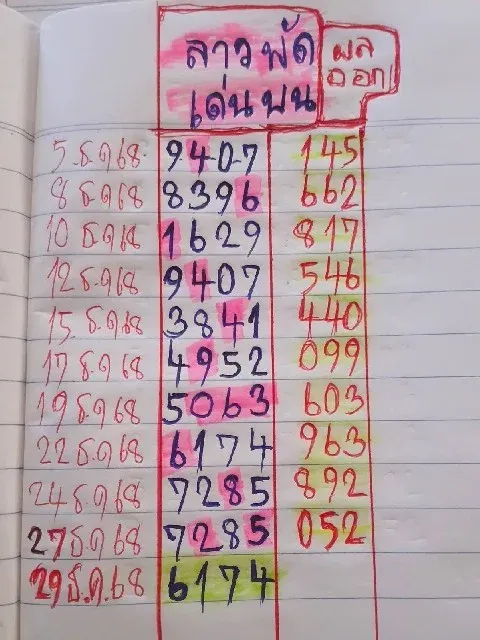 ลาวพัฒ ผล
เด่นบน ออก
5 ธ.ค 68 9407 145
8 ธ.ค 68 8396 662
10 ธ.ค 68 1629 817
12 ธ.ค 68 9407 546
15 ธ.ค 68 3841 440
17 ธ.ค 68 4952 099
19 ธ.ค 68 5063 603
22 ธ.ค 68 6174 963
24 ธ.ค 68 7285 892
27 ธ.ค 68 7285 052
29 ธ.ค. 68 6174